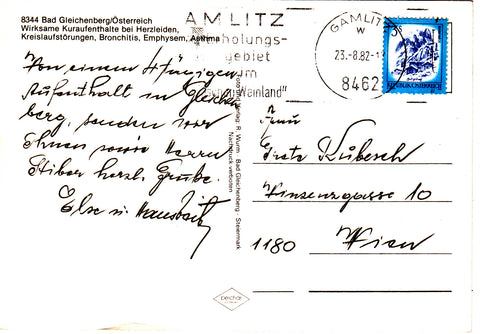 8344 Bad Gleichenberg/Österreich
Wirksame Kuraufenthalte bei Herzleiden,
Kreislaufstörungen, Bronchitis, Emphysem, Asthma
AMLITZ
holungs-
gebiet
um
Weinland"
GAMLITZ
23.-8.82-1
8462
REPUBLIK ÖSTERREICH
Von einem
Aufenthalt in Gleichen
berg, senden wir
Ihnen sowie Herrn
herzl. Grüße.
Else u.
R. Wurm Bad Gleichenberg Steiermark
Nachdruck verboten
Frau
Kubesch
Vinzenzgasse 10
1180 Wien